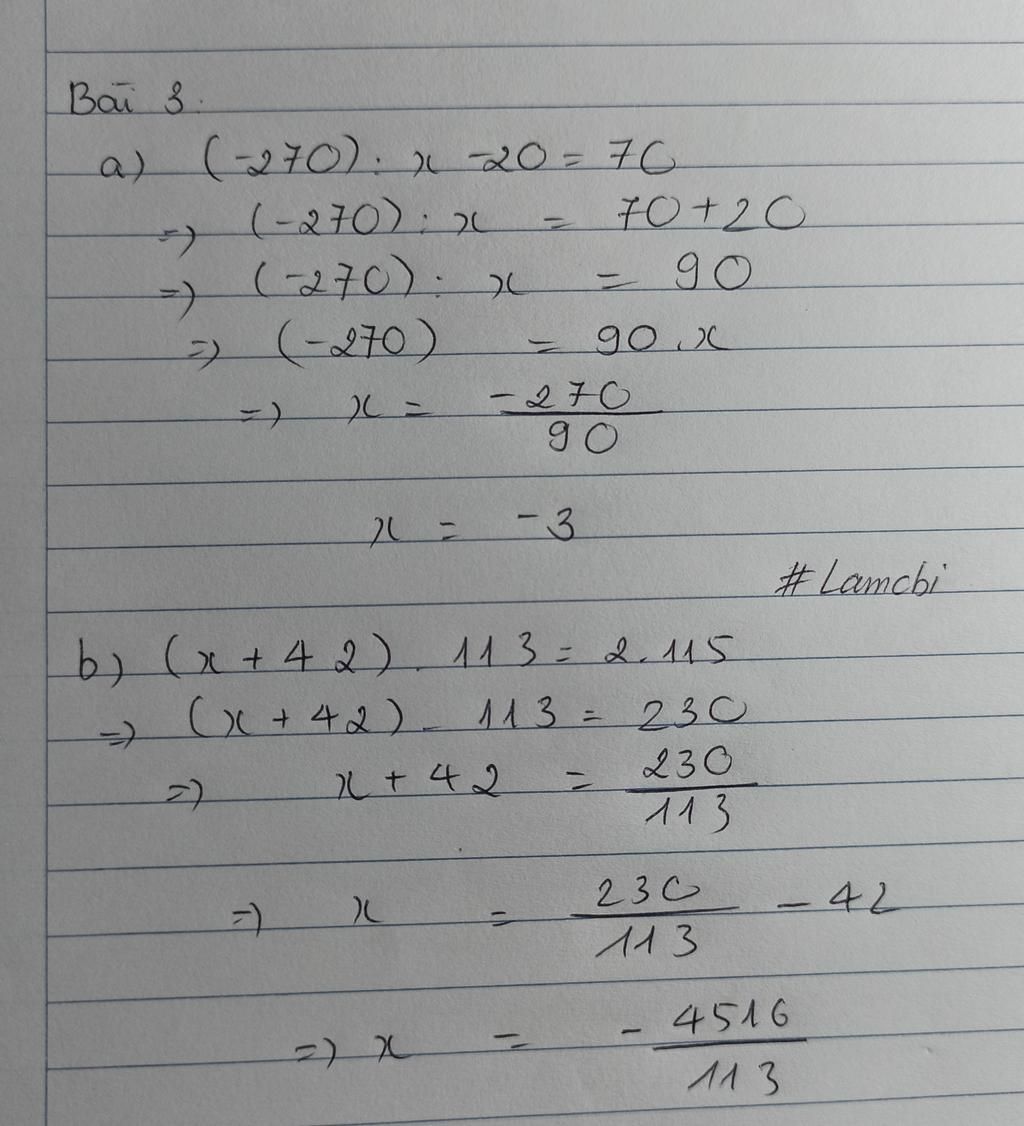 Bài 3.
a) (-270) : x -20 = 70
=> (-270) : x = 70+20
=> (-270) : x = 90
=> (-270) = 90.x
=> x = -270/90
x = -3
#Lamcbi
b) (x + 42). 113 = 2.115
=> (x + 42). 113 = 230
=> x + 42 = 230/113
=> x = 230/113 - 42
=> x = - 4516/113